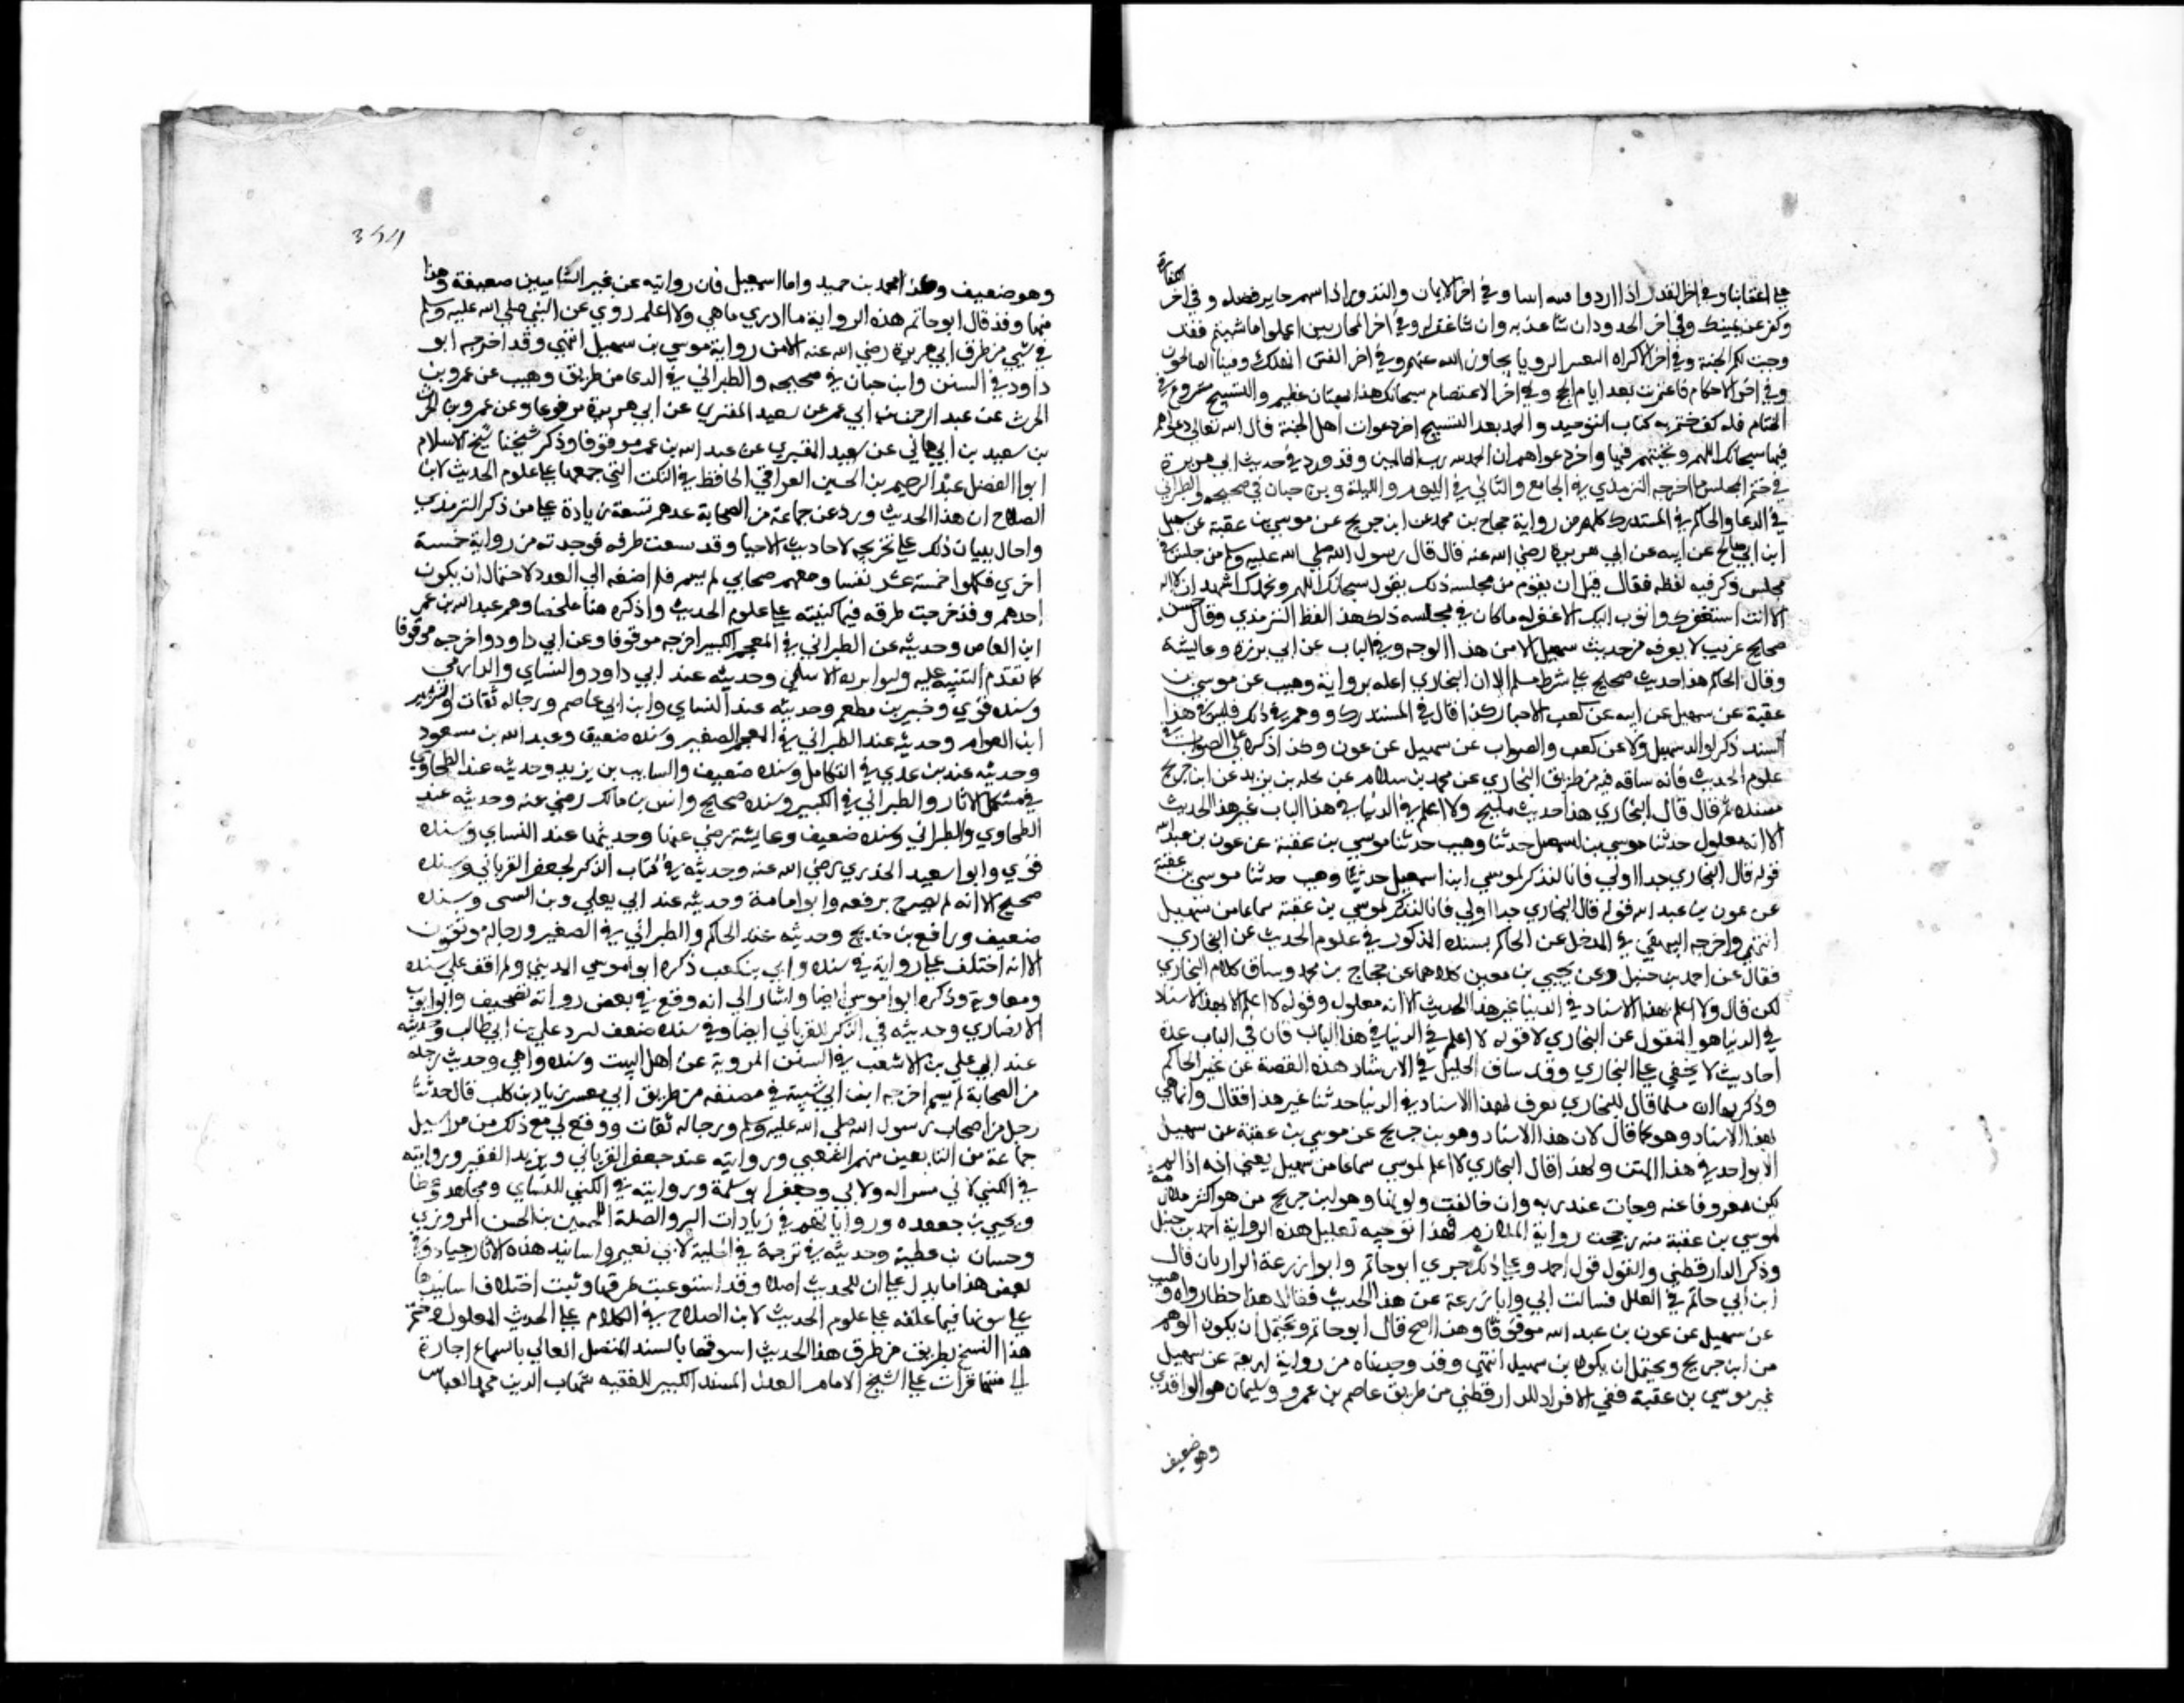 على اعقابنا وفي اخر القدر اذا ارادوا فتنة ابينا وفي اخر الايمان والنذور اذا اسهم جاير فضله وفي اخر الكفارة
وكفر عن يمينك وفي اخر الحدود ان شا عذبه وان شا غفر له وفي اخر المحاربين اعملوا ما شيتم فقد
وجبت لكم الجنة وفي اخر الاكراه الرويا تجاوز الله عنهم وفي اخر الفتن انهلك وفينا الصالحون
وفي اخر الاحكام فاعتمرت بعد ايام الحج وفي اخر الاعتصام سبحانك هذا بهتان عظيم والتسبيح مشروع في
الختام فلذلك ختم به كتاب التوحيد والحمد بعد التسبيح اخر دعوات اهل الجنة قال الله تعالى دعواهم
فيها سبحانك اللهم وتحيتهم فيها واخر دعواهم ان الحمد لله رب العالمين وقد ورد في حديث ابي هريرة
في ختم المجلس ما اخرجه الترمذي في الجامع والنسائي في اليوم والليلة وبن حبان في صحيحه والطبراني
في الدعا والحاكم في المستدرك كلهم من رواية حجاج بن محمد عن ابن جريج عن موسي بن عقبة عن سهيل
ابن ابي صالح عن ابيه عن ابي هريرة رضي الله عنه قال قال رسول الله صلي الله عليه وسلم من جلس في
مجلس وكثر فيه لغطه فقال قبل ان يقوم من مجلسه ذلك يقول سبحانك اللهم وبحمدك اشهد ان لا اله
الا انت استغفرك واتوب اليك الا غفر له ما كان في مجلسه ذلك هذا لفظ الترمذي وقال حسن
صحيح غريب لا يعرفه من حديث سهيل الا من هذا الوجه وفي الباب عن ابي برزة وعايشة
وقال الحاكم هذا حديث صحيح علي شرط مسلم الا ان البخاري اعله برواية وهيب عن موسي بن
عقبة عن سهيل عن ابيه عن كعب الاحبار كذا قال في المستدرك ووهم في ذلك فليس في هذا
السند ذكر لوالد سهيل ولا عن كعب والصواب عن سهيل عن عون وكذا ذكره علي الصواب في
علوم الحديث فانه ساقه فيه من طريق البخاري عن محمد بن سلام عن مخلد بن يزيد عن ابن جريج
بسنده ثم قال قال البخاري هذا حديث مليح ولا اعلم في الدنيا في هذا الباب غير هذا الحديث
الا انه معلول حدثنا موسي بن اسمعيل حدثنا وهيب حدثنا موسي بن عقبة عن عون بن عبد الله
قوله قال البخاري هذا اولي فانا لا نذكر لموسي ابن اسمعيل حدثنا وهيب حدثنا موسي بن عقبة
عن عون بن عبد الله قوله قال البخاري هذا اولي فانا لا نذكر لموسي بن عقبة سماعا من سهيل
انتهي واخرجه البيهقي في المدخل عن الحاكم بسنده المذكور في علوم الحديث عن البخاري
فقال عن احمد بن حنبل وعن يحيي بن معين كلاهما عن حجاج بن محمد وساق كلام البخاري
لكن قال ولا اعلم بهذا الاسناد في الدنيا غير هذا الحديث الا انه معلول وقوله لا اعلم الا بهذا الاسناد
في الدنيا هو المنقول عن البخاري لا قوله لا اعلم في الدنيا في هذا الباب فان في الباب عدة
احاديث لا يخفي علي البخاري وقد ساق الخليل في الارشاد هذه القصة عن غير الحاكم
وذكر بها ان مسلما قال للبخاري تعرف بهذا الاسناد في الدنيا حديثا غير هذا فقال وانما هي
بهذا الاسناد وهو كما قال لان هذا الاسناد وهو بن جريج عن موسي بن عقبة عن سهيل
الا بواحد في هذا المتن ولهذا قال البخاري لا اعلم لموسي سماعا من سهيل يعني انه اذا لم
يكن معروفا عنه وجات عنه رواية وان خالفت راويها وهو ابن جريج من هو اكثر ملازمة
لموسي بن عقبة منه رجحت رواية الملازم فهذا توجيه تعليل هذه الرواية احمد بن حنبل
وذكر الدارقطني والقول قول احمد وعلي ذلك جري ابو حاتم وابو زرعة الرازيان قال
ابن ابي حاتم في العلل سالت ابي وابا زرعة عن هذا الحديث فقالا هذا خطا رواه وهيب
عن سهيل عن عون بن عبد الله موقوفا وهذا اصح قال ابو حاتم ويحتمل ان يكون الوهم
من ابن جريج ويحتمل ان يكون بن سهيل انتهي وقد وجدناه من رواية اربعة عن سهيل
غير موسي بن عقبة ففي الافراد للدارقطني من طريق عاصم بن عمرو وسليمان هو الواقدي
وهو ضعيف
354
وهو ضعيف وكذا محمد بن حميد واما اسمعيل فان روايته عن غير الشاميين ضعيفة وهذا
منها وقد قال ابو حاتم هذه الرواية ما ادري ما هي ولا اعلم روي عن النبي صلي الله عليه وسلم
في شي من طرق ابي هريرة رضي الله عنه الا من رواية موسي بن سهيل انتهي وقد اخرجه ابو
داود في السنن وابن حبان في صحيحه والطبراني في الدعا من طريق وهيب عن عمرو بن
الحرث عن عبد الرحمن بن ابي عمر عن سعيد المقبري عن ابي هريرة مرفوعا وعن عمرو بن الحرث
بن سعيد بن ابي هاني عن سعيد المقبري عن عبد الله بن عمر موقوفا وذكر شيخنا شيخ الاسلام
ابو الفضل عبد الرحيم بن الحسين العراقي الحافظ في النكت التي جمعها علي علوم الحديث لابن
الصلاح ان هذا الحديث ورد عن جماعة من الصحابة عدهم تسعة زيادة علي من ذكر الترمذي
واحال ببيان ذلك علي تخريجه لاحاديث الاحيا وقد تتبعت طرقه فوجدته من رواية خمسة
اخري فكملوا خمسة عشر نفسا ومعهم صحابي لم يسم فلم اضفه الي العدد لاحتمال ان يكون
احدهم وقد خرجت طرقه فيما كتبته علي علوم الحديث واذكره هنا ملخصا وهم عبد الله بن عمر
ابن العاص وحديثه عن الطبراني في المعجم الكبير اخرجه موقوفا وعن ابي داود واخرجه موقوفا
كما تقدم التنبيه عليه وابو برزة الاسلمي وحديثه عند ابي داود والنساي والدارمي
وسنده قوي وجبير بن مطعم وحديثه عند النساي وابن ابي عاصم ورجاله ثقات والزبير
ابن العوام وحديثه عند الطبراني في المعجم الصغير وسنده ضعيف وعبد الله بن مسعود
وحديثه عند بن عدي في الكامل وسنده ضعيف والسايب بن يزيد وحديثه عند الطحاوي
في مشكل الاثار والطبراني في الكبير وسنده صحيح وانس بن مالك رضي عنه وحديثه عند
الطحاوي والطبراني وسنده ضعيف وعايشة رضي عنها وحديثها عند النساي وسنده
قوي وابو سعيد الخدري رضي الله عنه وحديثه في كتاب الذكر لجعفر الفريابي وسنده
صحيح الا انه لم يصرح برفعه وابو امامة وحديثه عند ابي يعلي وبن السني وسنده
ضعيف ورافع بن خديج وحديثه عند الحاكم والطبراني في الصغير ورجاله موثقون
الا انه اختلف علي رواية في سنده وابي بن كعب ذكره ابو موسي المديني ولم اقف علي سنده
ومعاوية وذكره ابو موسي ايضا واشار الي انه وقع في بعض رواته تصحيف وابو ايوب
الانصاري وحديثه في الذكر للفريابي ايضا وفي سنده ضعف لرد علي بن ابي طالب وحديثه
عند ابي علي بن الاشعب في السنن المروية عن اهل البيت وسنده واهي وحديث رجل
من الصحابة لم يسم اخرجه ابن ابي شيبة في مصنفه من طريق ابي معشر زياد بن كليب قال حدثنا
رجل من اصحاب رسول الله صلي الله عليه وسلم ورجاله ثقات ووقع لي مع ذلك من مراسيل
جماعة من التابعين منهم الشعبي وروايته عند جعفر الفريابي ويزيد الفقير وروايته
في الكني لابي بشر الدولابي وجعفر ابو سلمة وروايته في الكني للنساي ومجاهد وعطا
ويحيي بن جعدة وروايتهم في زيادات البر والصلة للحسين بن الحسن المروزي
وحسان بن عطية وحديثه في ترجمة في الحلية لابي نعيم واسانيد هذه الاثار جياد وفي
بعض هذا ما يدل علي ان للحديث اصلا وقد استوعبت طرقها وبينت اختلاف اسانيدها
علي متونها فيما علقته علي علوم الحديث لابن الصلاح في الكلام علي الحديث المعلول ختم
هذا النسخ بطريق من طرق هذا الحديث اسوقها بالسند المتصل العالي بالسماع اجازة
الي منتهاه قرات علي الشيخ الامام العدل المسند الكبير للفقيه شهاب الدين محمد العباس